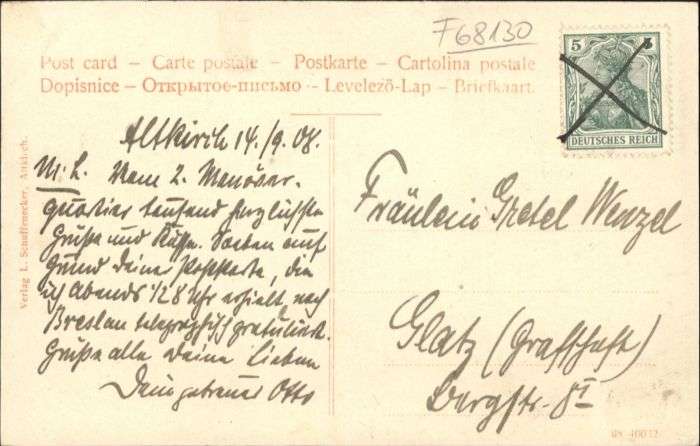 F68130
Post card – Carte postale – Postkarte – Cartolina postale
Dopisnice – Открытое-письмо – Levelező-Lap – Briefkaart.
5
DEUTSCHES REICH
Altkirch 14./9. 08.
M. L. Vom 2. Manöver-
quartier tausend herzlichste
Grüße und Küsse. Soeben auf
Grund deiner Postkarte, die
ich Abends 1/28 Uhr erhielt, nach
Breslau telegrafisch gratuliert.
Grüße alle deine Lieben
Dein getreuer Otto
Fräulein Gretel Wenzel
Glatz (Grafschaft)
Bergstr. 8 I
Verlag L. Schuffenecker, Altkirch.